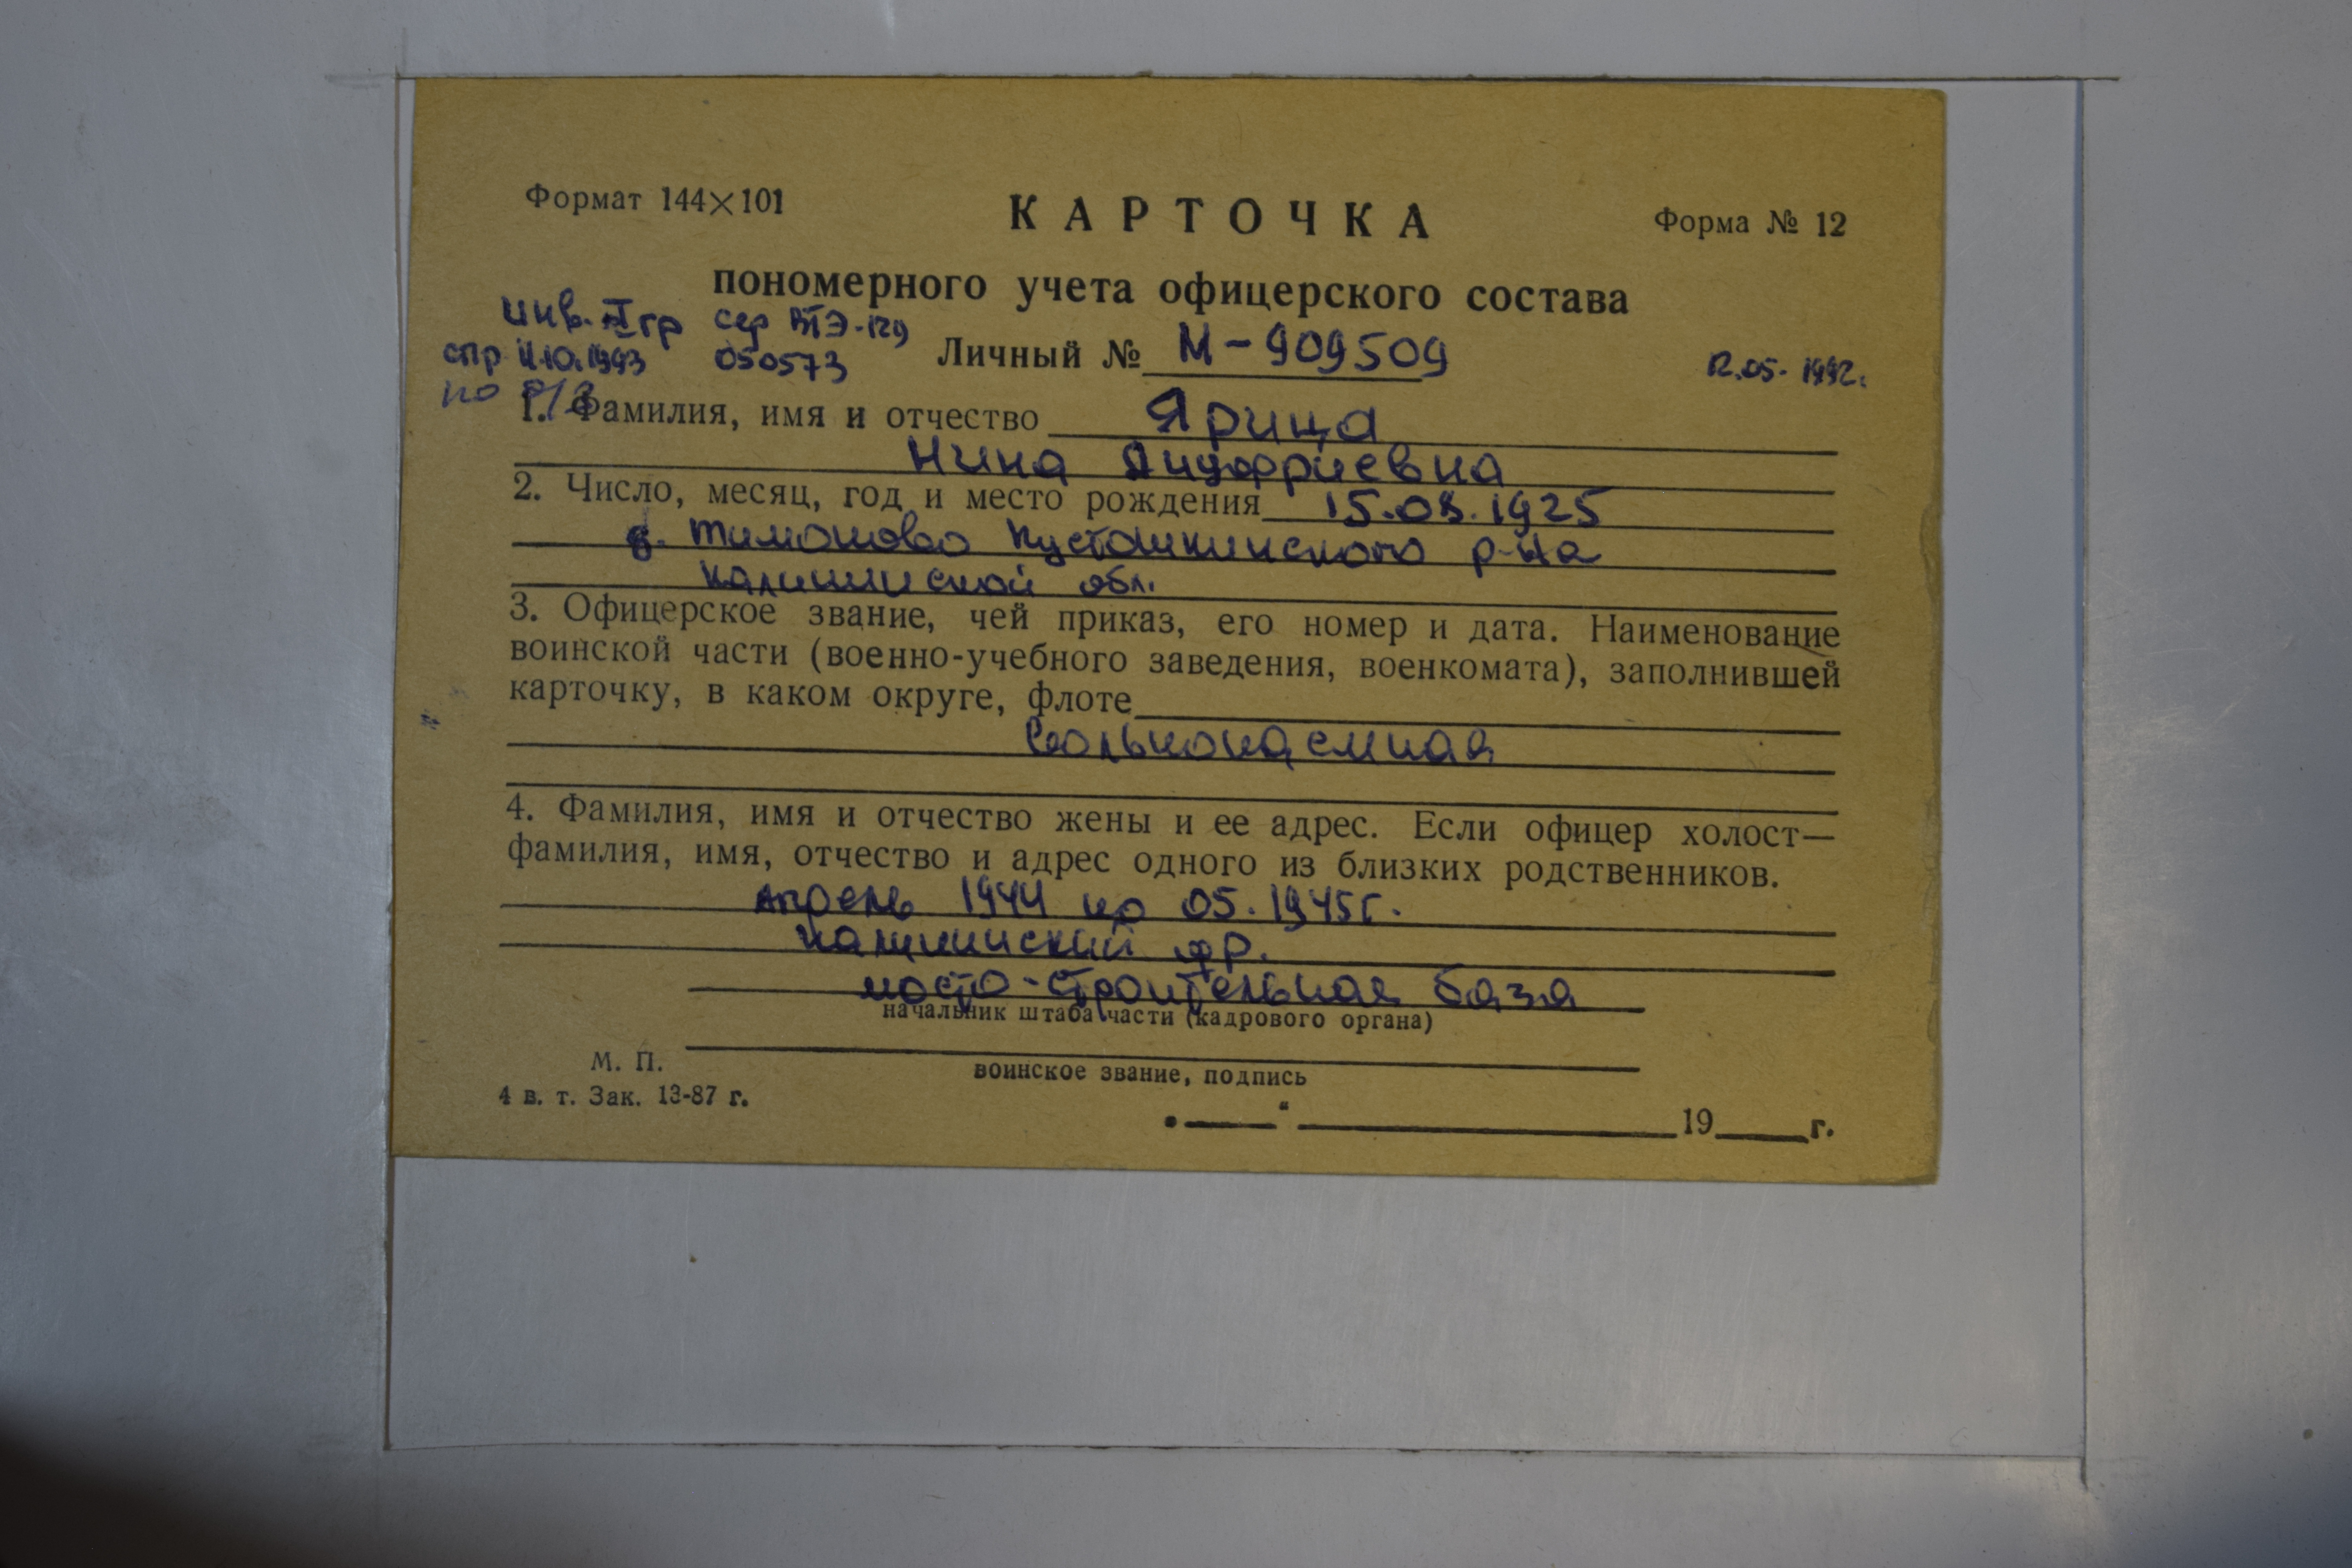 Формат 144×101
КАРТОЧКА
Форма № 12
пономерного учета офицерского состава
инв. I гр сер ВТЭ-129
спр 11.10.1993 050573
Личный № М-909509
12.05.1992г.
по о/з
1. Фамилия, имя и отчество Ярица
Нина Ануфриевна
2. Число, месяц, год и место рождения 15.08.1925
д. Тимоново Пустошкинского р-на
Калининской обл.
3. Офицерское звание, чей приказ, его номер и дата. Наименование
воинской части (военно-учебного заведения, военкомата), заполнившей
карточку, в каком округе, флоте
Вольнонаемная
4. Фамилия, имя и отчество жены и ее адрес. Если офицер холост—
фамилия, имя, отчество и адрес одного из близких родственников.
Апрель 1944 по 05.1945г.
Калининский фр.
мосто-строительная база
начальник штаба части (кадрового органа)
М. П.
воинское звание, подпись
4 в. т. Зак. 13-87 г.
„___“ ________ 19___г.